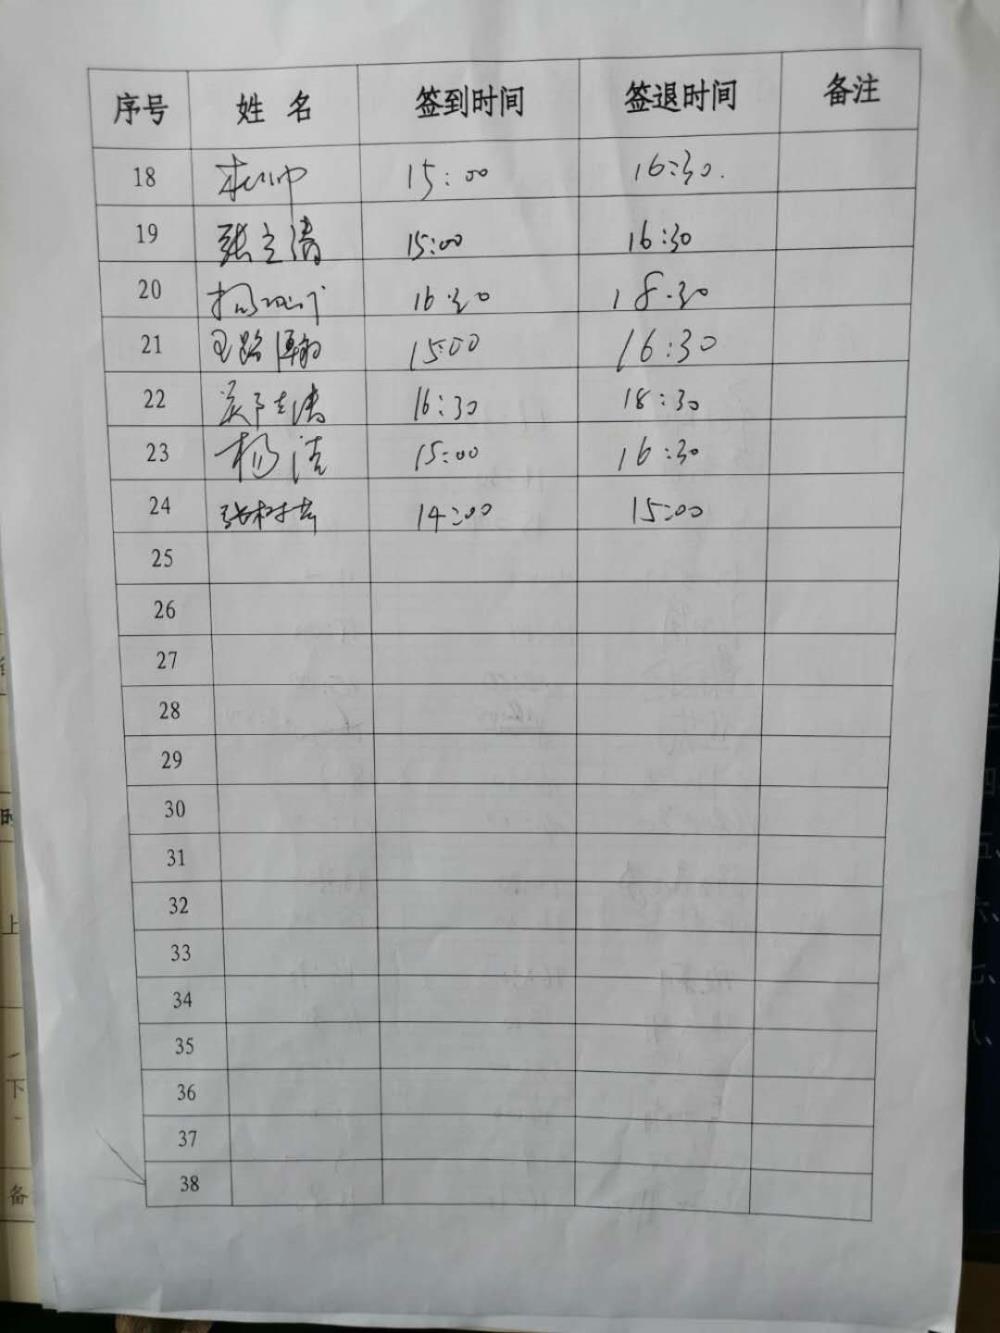 序号 姓名 签到时间 签退时间 备注
18 15:00 16:30.
19 张立涛 15:00 16:30
20 16:30 18:30
21 王路博翔 15:00 16:30
22 16:30 18:30
23 杨洁 15:00 16:30
24 14:00 15:00
25
26
27
28
29
30
31
32
33
34
35
36
37
38
时
上
下
备